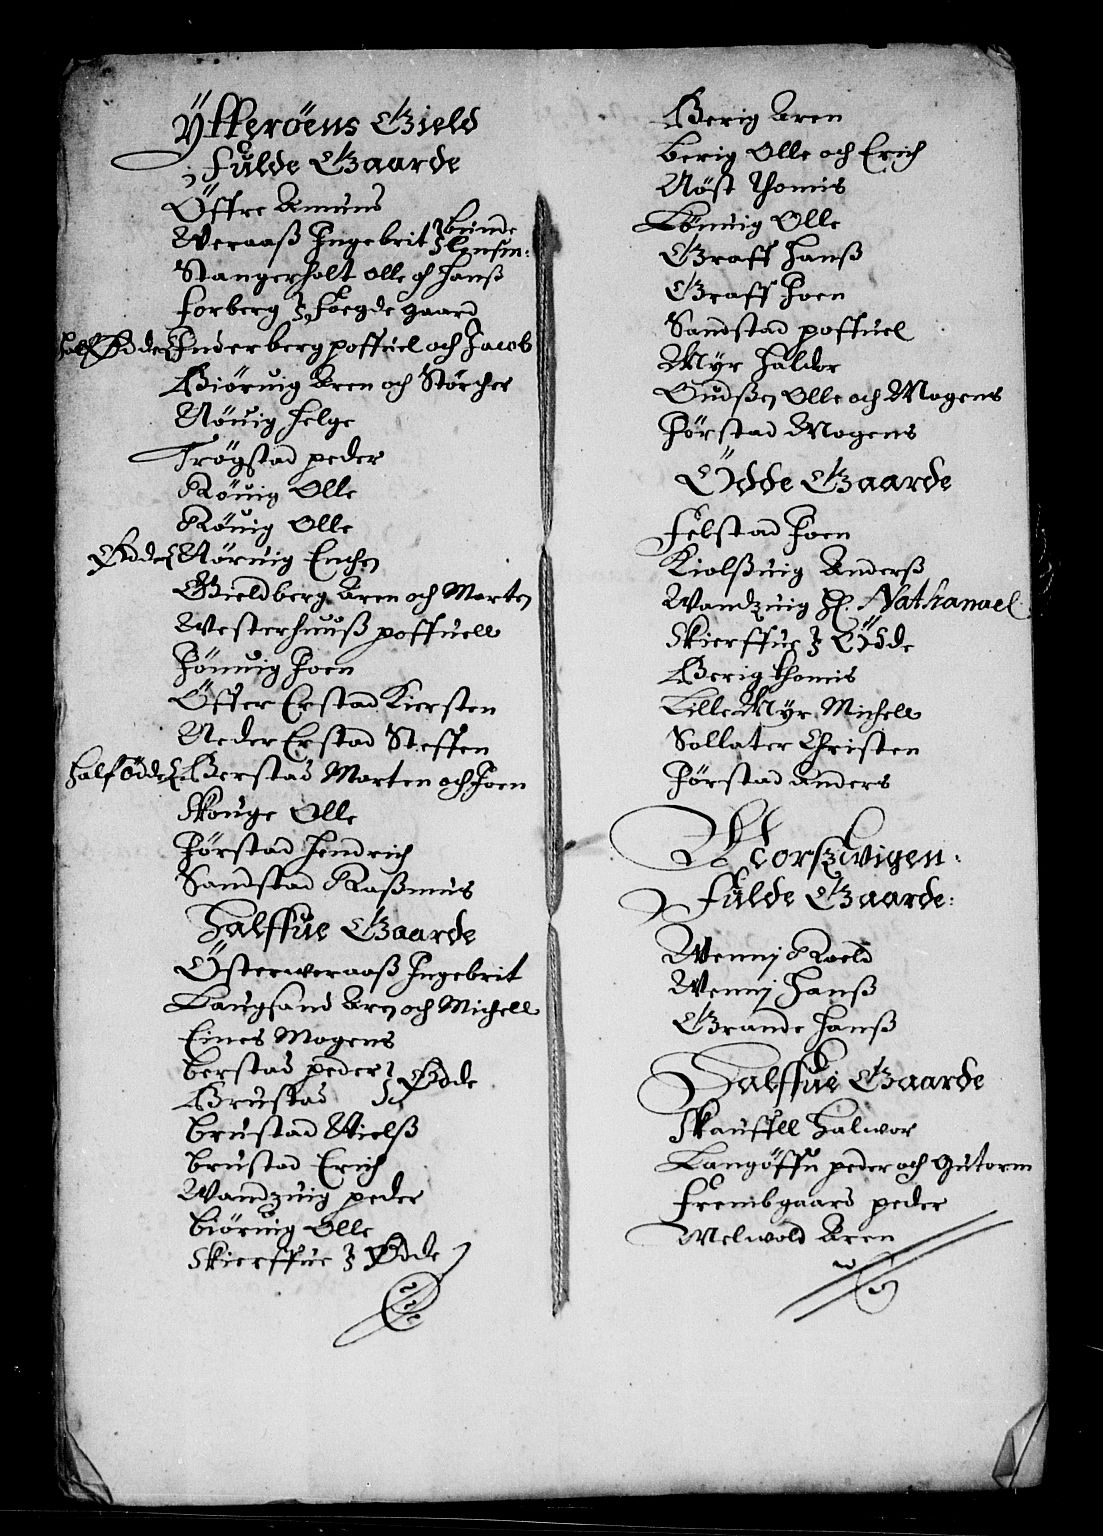 Ytterøens Gield
Fulde Gaarde
Öffre Amuns
Weraaß Ingebrit
Bunde
Stangerholt olle och Hanß
Forberg ʒ Foegde gaard
Half Ødde Inderberg poffuel och Jacob
Biöruig Aren och Störcher
Nöuig Helge
Trögstad peder
Röuig Olle
Röuig Olle
Ødde Nöruig Enchen
Gieldberg Aren och Morten
Westerhuuß poffuell
Hönuig Joen
Öffer Erstad Kiersten
Neder Erstad Steffen
Half ödde Berstad Morten och Joen
Skouge Olle
Hörstad Hendrich
Sandstad Raßmus
Halffue Gaarde
Österweraaß Ingebrit
Laugsand Aren och Michell
Eines Mogens
Berstad peder
Ødde
Brustad
Brustad Nielß
Brustad Erich
Wandzuig peder
Biöruig Olle
Skierffue ʒ Ødde
Berig Aren
Berig Olle och Erich
Nöst Thomis
Lönuig Olle
Graff Hanß
Graff Joen
Sandstad poffuel
Myr Haldor
Gudßen Olle och Mogens
Hörstad Mogens
Ödde Gaarde
Felstad Joen
Kiolßuig Anderß
Wandzuig H. Nathanael
Skierffue ʒ Ödde
Berig Thomis
Lille Myr Michell
Sollater Christen
Hörstad Anders
Woxwigen:
Fulde Gaarde:
Wennij Roeld
Wennij Hanß
Grande Hanß
Halffue Gaarde
Skauffell Halwor
Langöffu peder och Gutorm
Frembgaard peder
Melwold Aren